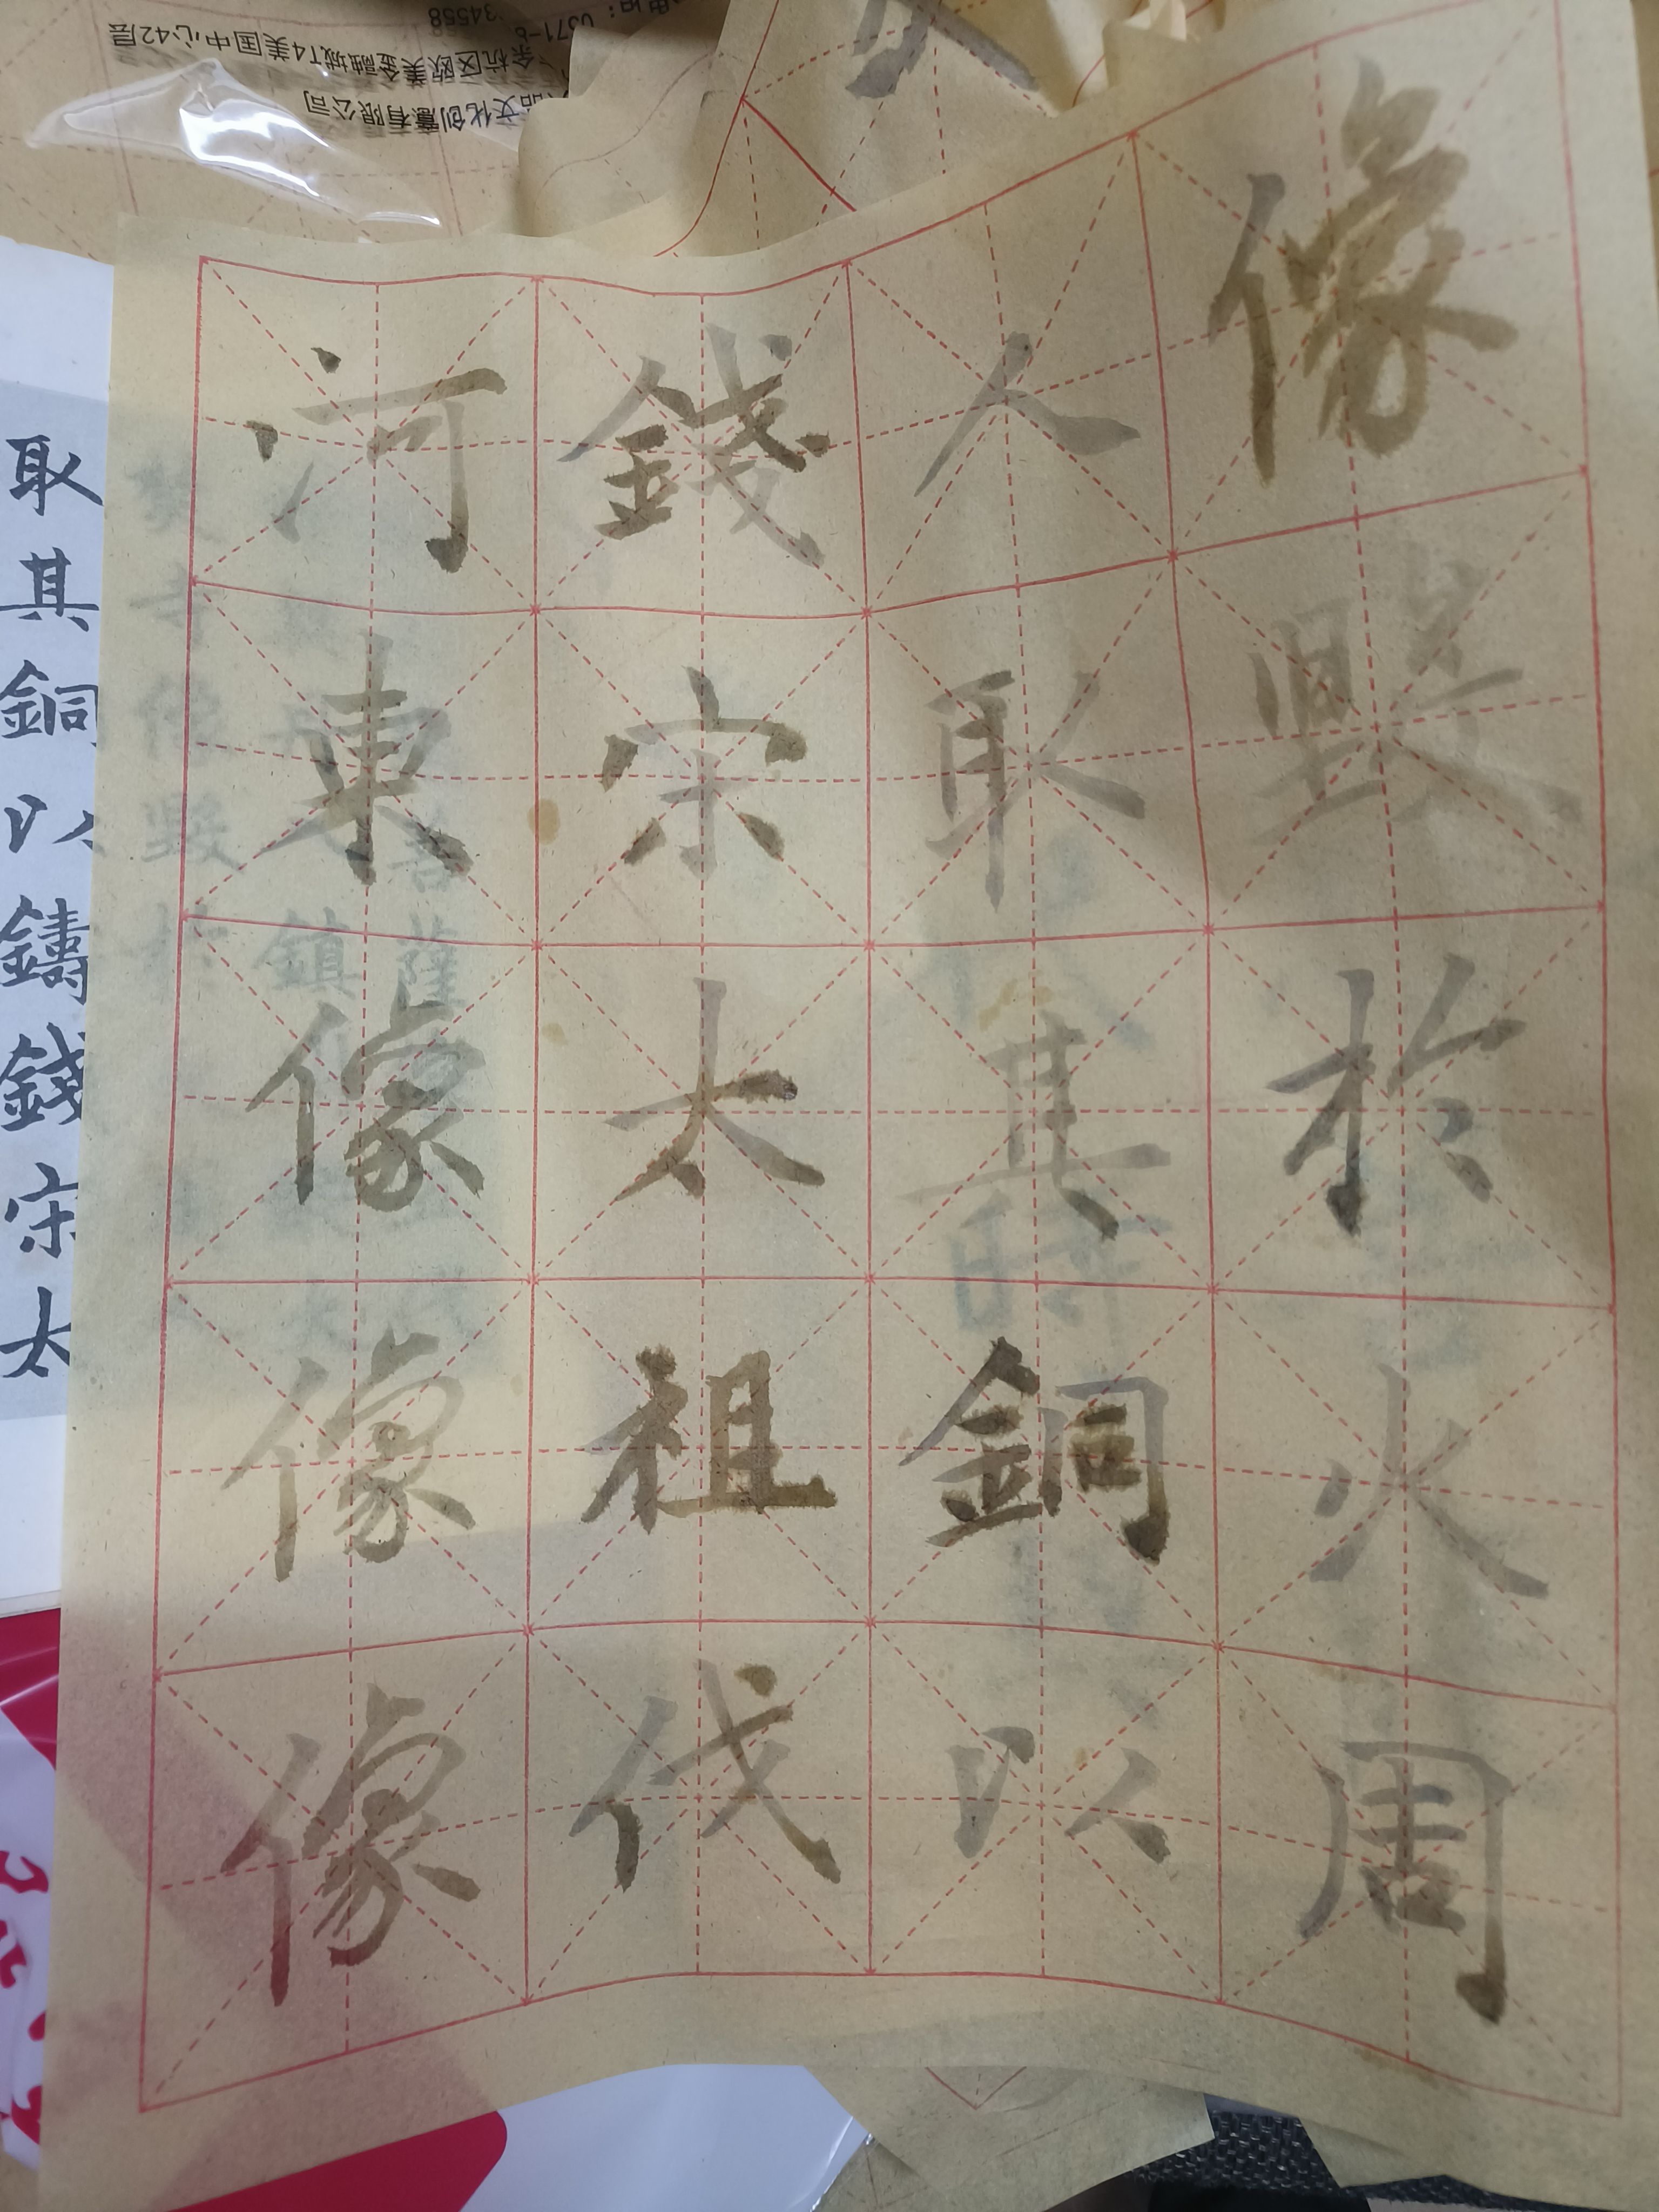 像毀於火周
人取其銅以
錢宋太祖伐
河東像像像
取其銅以鑄錢宋太
余杭区欧美金融城T4美国中心42层
文化创意有限公司
34558